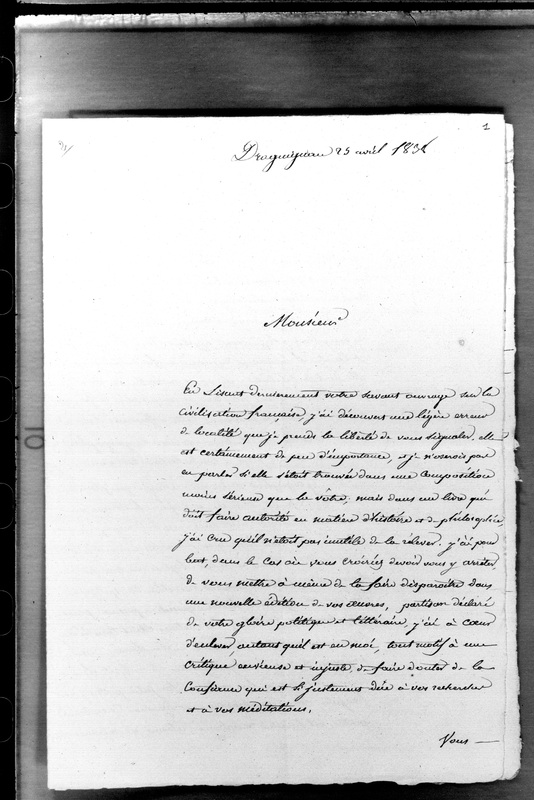 1
Draguignan 25 avril 183
Monsieur
En Lisant dernierement votre savant ouvrage sur la
civilisation française, j'ai découvert une légère erreur
de localité que je prends la liberté de vous signaler. elle
est certainement de peu d'importance, et je n'oserois pas
en parler si elle s'étoit trouvée dans une Composition
moins sérieuse que la vôtre; mais dans un livre qui
doit faire autorité en matière d'histoire et de philosophie
j'ai Cru qu'il n'étoit pas inutile de la relever. j'ai pour
but, dans le Cas où vous croiriés devoir vous y arrêter,
de vous mettre à même de la faire disparoitre dans
une nouvelle édition de vos œuvres, partisan déclaré
de votre gloire politique et littéraire, j'ai à Cœur
d'enlever, autant qu'il est en moi, tout motif à une
Critique envieuse et injuste, de faire douter de la
Confiance qui est si justement düe à vos recherches
et à vos méditations.
Vous —
10